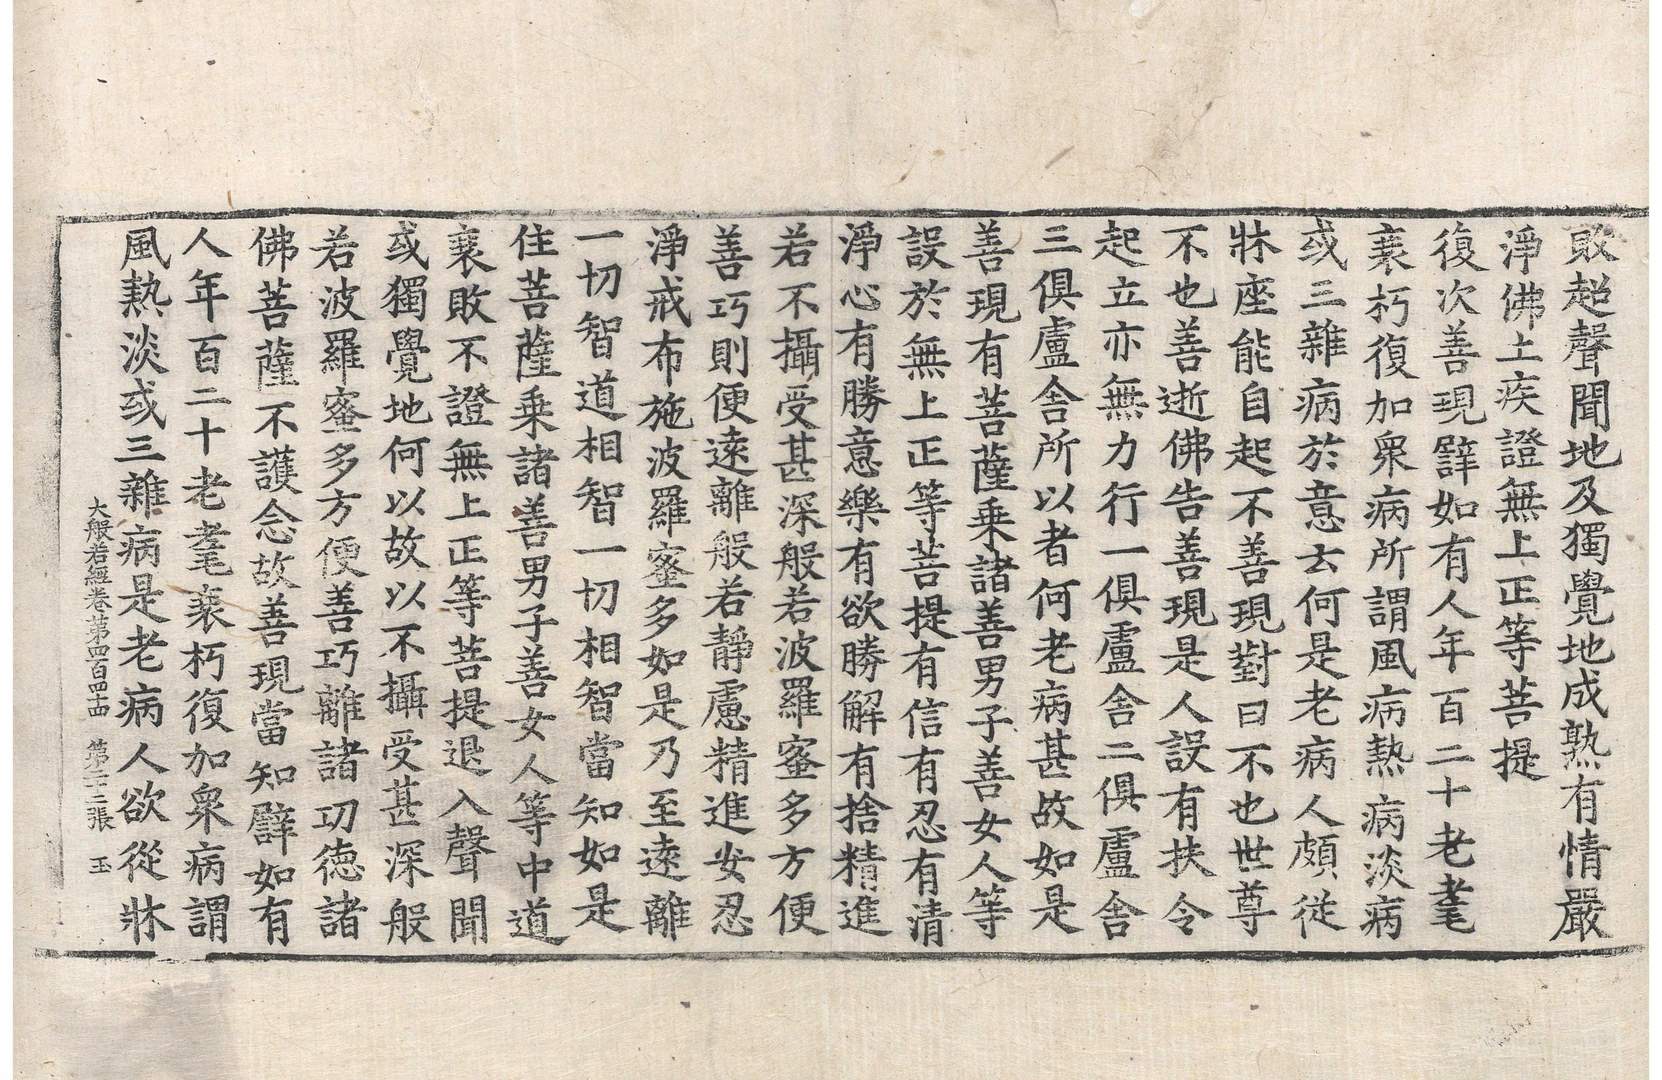 敗超聲聞地及獨覺地成熟有情嚴
淨佛土疾證無上正等菩提
復次善現譬如有人年百二十老耄
衰朽復加衆病所謂風病熱病淡病
或三雜病於意云何是老病人頗從
牀座能自起不善現對曰不也世尊
不也善逝佛告善現是人設有扶令
起立亦無力行一俱盧舍二俱盧舍
三俱盧舍所以者何老病甚故如是
善現有菩薩乘諸善男子善女人等
設於無上正等菩提有信有忍有清
淨心有勝意樂有欲勝解有捨精進
若不攝受甚深般若波羅蜜多方便
善巧則便遠離般若靜慮精進安忍
淨戒布施波羅蜜多如是乃至遠離
一切智道相智一切相智當知如是
住菩薩乘諸善男子善女人等中道
衰敗不證無上正等菩提退入聲聞
或獨覺地何以故以不攝受甚深般
若波羅蜜多方便善巧離諸功德諸
佛菩薩不護念故善現當知譬如有
人年百二十老耄衰朽復加衆病謂
風熱淡或三雜病是老病人欲從牀
大般若經卷第四百四十四 第二十二張 玉